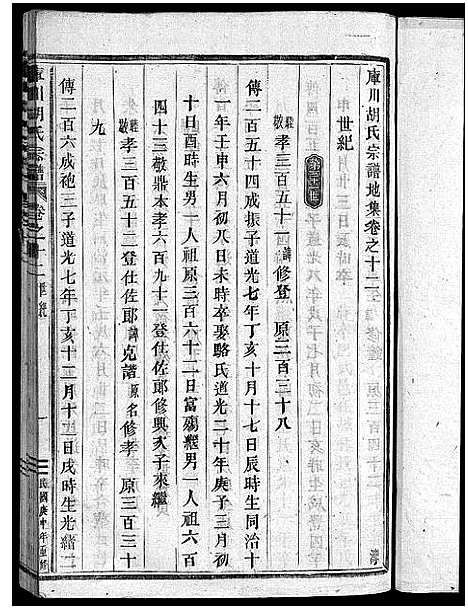 庫川胡氏宗譜地集卷之十二
世紀
駿敬孝三百五十一諱修登 原三百三十八
傳二百五十四成振子道光七年丁亥十月十七日辰時生同治十
一年壬申六月初八日未時卒娶駱氏道光二十年庚子三月初
十日酉時生男一人祖原三百六十二日富殤繼男一人祖六百
四十三敬鼎本孝六百九十一登仕佐郎修興次子來繼
敬孝三百五十二登仕佐郎諱克諧原名修孝 原三百三十
九
傳二百六成礮三子道光七年丁亥十二月十三日戌時生光緒二
庫川胡氏宗譜 卷之十二 世紀 一 民國庚申年重修